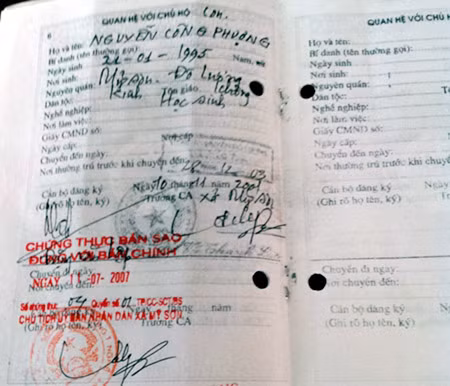 6
QUAN HỆ VỚI CHỦ HỘ Con.
Họ và tên: NGUYỄN CÔNG PHƯỢNG
Bí danh (tên thường gọi):
Ngày sinh 21-01-1995 Nam, nữ
Nơi sinh: Mỹ Sơn - Đô Lương
Nguyên quán:
Dân tộc: Kinh Tôn giáo: không
Nghề nghiệp: Học sinh
Nơi làm việc:
Giấy CMND số:
Ngày cấp: Nơi cấp
Chuyển đến ngày:
Nơi thường trú trước khi chuyển đến:
28-12-03
Cán bộ đăng ký Ngày 10 tháng 11 năm 2001
(Ghi rõ họ tên, ký) Trưởng CA xã Mỹ Sơn
CHỨNG THỰC BẢN SAO
ĐÚNG VỚI BẢN CHÍNH
Chuyển đi ngày
NGÀY 11-07-2007
Nơi chuyển đến:
Số chứng thực 04 Quyển số 01 TP/CC-SCT/BS
tháng năm
CHỦ TỊCH ỦY BAN NHÂN DÂN XÃ MỸ SƠN
(Ghi rõ họ tên, ký) Trưởng CA
QUAN HỆ VỚI CHỦ
Họ và tên:
Bí danh (tên thường gọi):
Ngày sinh
Nơi sinh:
Nguyên quán:
Dân tộc:
Nghề nghiệp:
Nơi làm việc:
Giấy CMND số:
Ngày cấp:
Chuyển đến ngày:
Nơi thường trú trước khi chuyển
Cán bộ đăng ký Ngày
(Ghi rõ họ tên, ký)
Chuyển đi ngày
Nơi chuyển đến:
Cán bộ đăng ký
(Ghi rõ họ tên, ký)